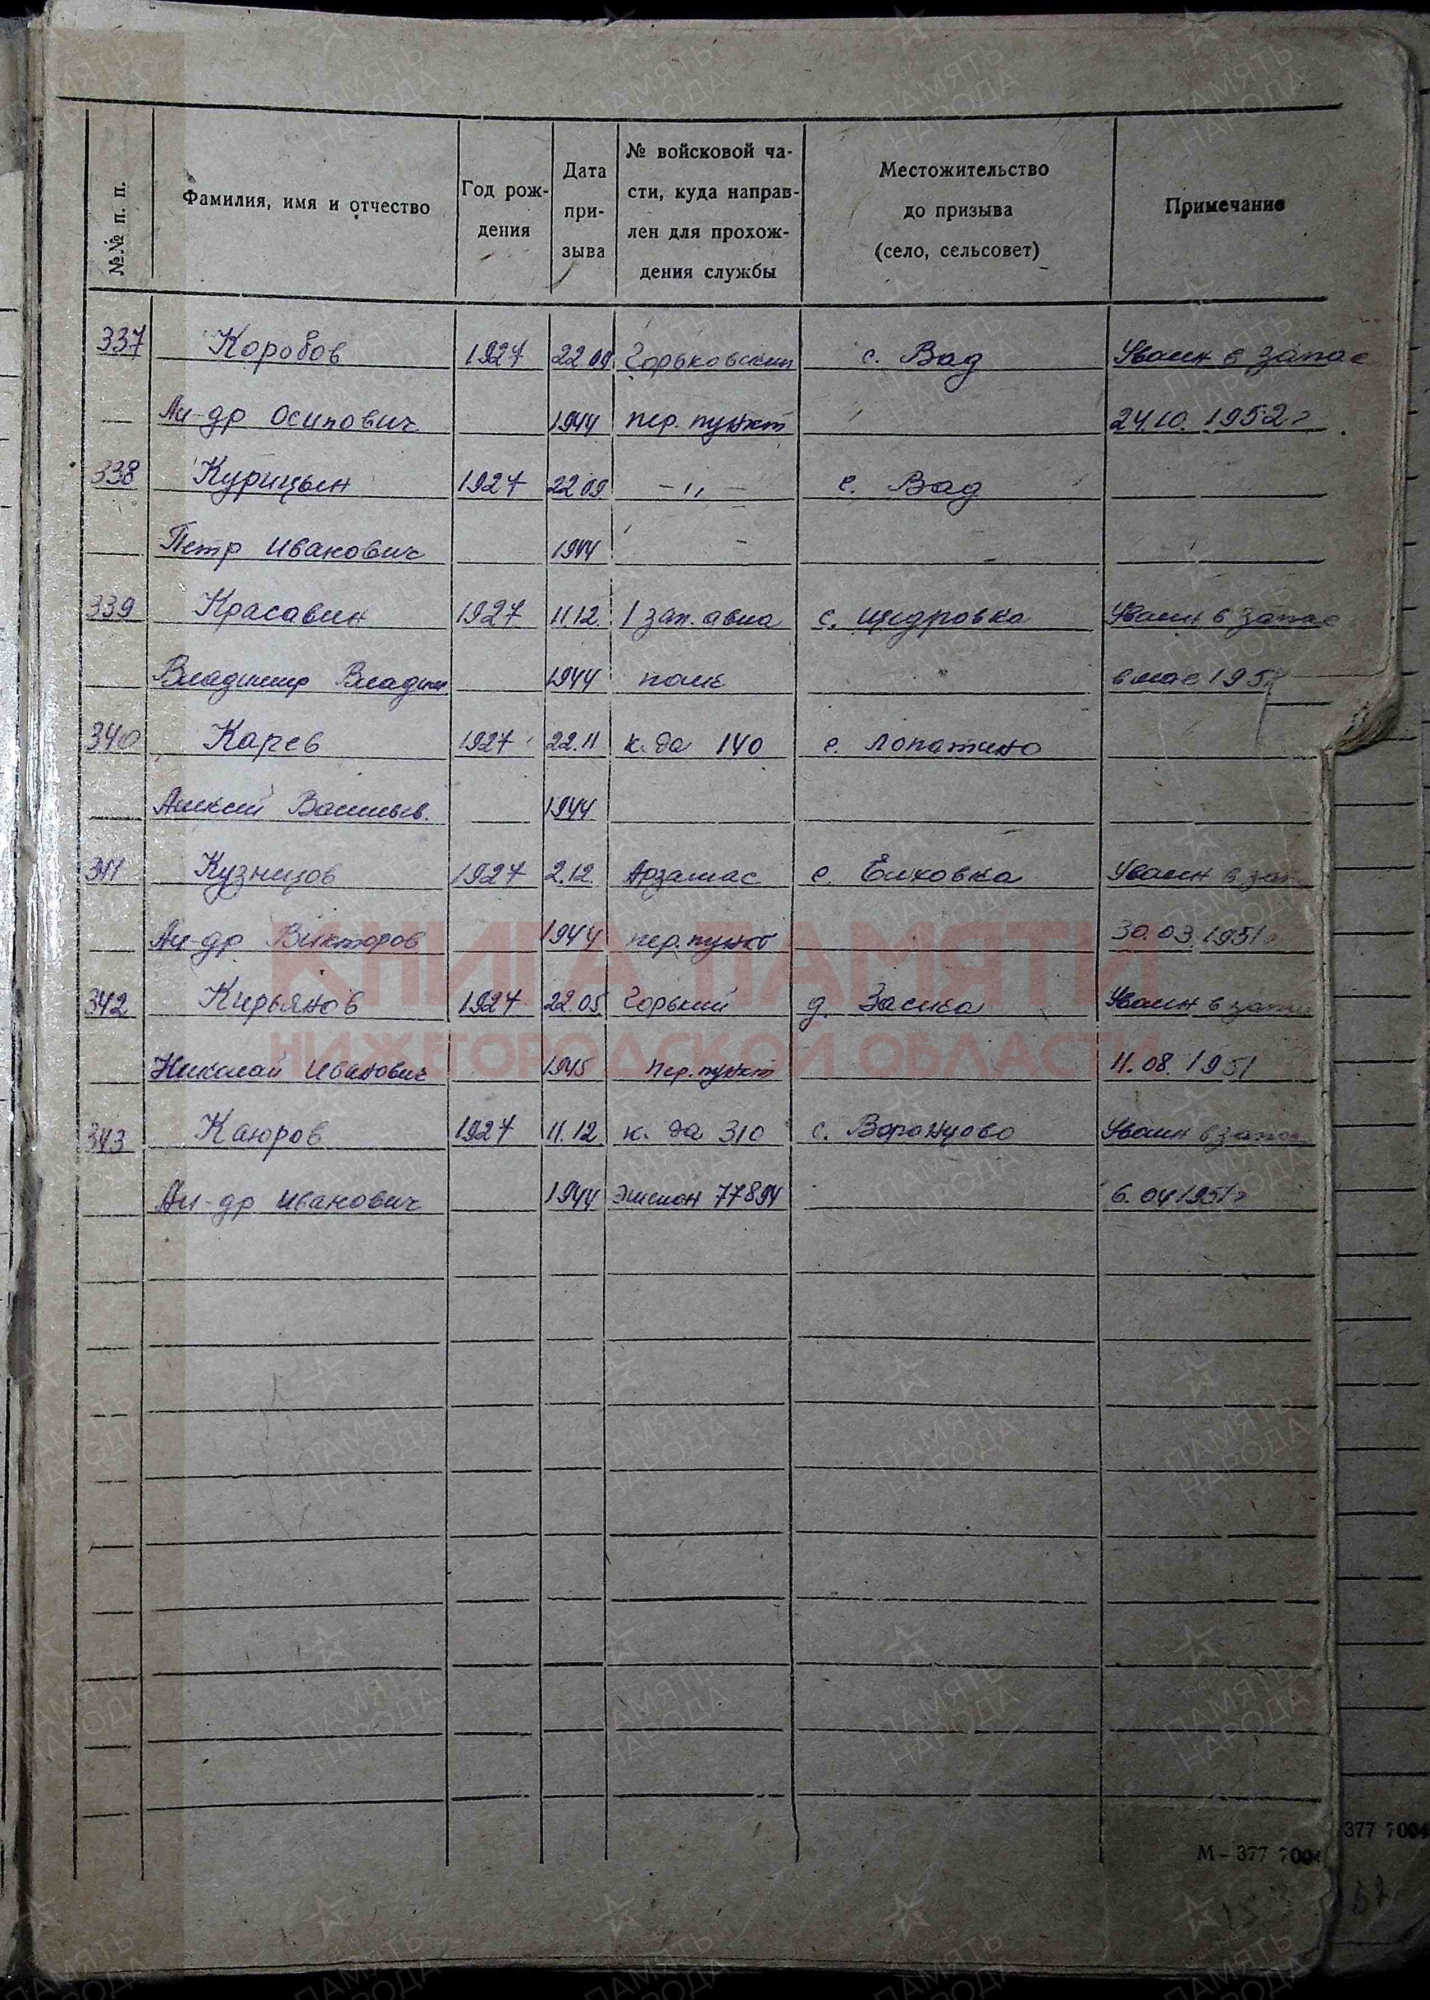 №№ п. п.
Фамилия, имя и отчество
Год рож-
дения
Дата
при-
зыва
№ войсковой ча-
сти, куда направ-
лен для прохож-
дения службы
Местожительство
до призыва
(село, сельсовет)
Примечание
337 Коробов 1927 22.09 Горьковский с. Вад Уволен в запас
Ал-др Осипович 1944 пер. пункт 24.10. 1952 г
338 Курицын 1927 22.09 -„- с. Вад
Петр Иванович 1944
339 Красавин 1927 11.12. 1 зап. авиа с. Щедровка Уволен в запас
Владимир Владим 1944 полк в мае 195
340 Карев 1927 22.11 к-да 140 с. Лопатино
Алексей Васильев. 1944
341 Кузнецов 1927 2.12. Арзамас с. Елховка Уволен в зап
Ал-др Викторов 1944 пер. пункт 30.03. 1951
342 Кирьянов 1927 22.05. Горький д. Засека Уволен в запас
Николай Иванович 1945 пер. пункт 11.08. 1951
343 Каюров 1927 11.12 к-да 310 с. Воронцово Уволен в запас
Ал-др Иванович 1944 эшелон 77894 6.04 1951 г
КНИГА ПАМЯТИ
НИЖЕГОРОДСКОЙ ОБЛАСТИ
ПАМЯТЬ
НАРОДА
М-377 7004
377 7004